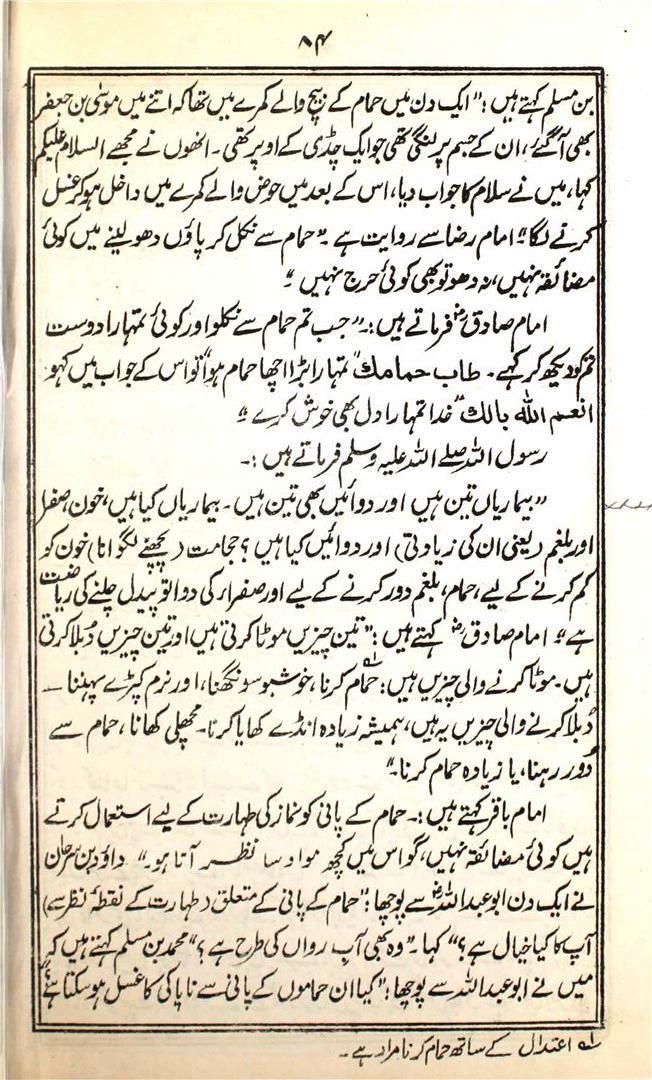 ۸۴
بن مسلم کہتے ہیں :" ایک دن میں حمام کے بیچ والے کمرے میں تھا کہ اتنے میں موسیٰ بن جعفر
بھی آ گئے، ان کے جسم پر لنگی تھی جو ایک چڈی کے اوپر تھی ۔ انھوں نے مجھے السلام علیکم
کہا، میں نے سلام کا جواب دیا، اس کے بعد میں حوض والے کمرے میں داخل ہو کر غسل
کرنے لگا" امام رضا سے روایت ہے ۔" حمام سے نکل کر پاؤں دھو لینے میں کوئی
مضائقہ نہیں، نہ دھو تو بھی کوئی حرج نہیں ۔"
امام صادقؓ فرماتے ہیں :۔" جب تم حمام سے نکلو اور کوئی تمہارا دوست
تم کو دیکھ کر کہے ۔ طاب حمامك "تمہارا بڑا اچھا حمام ہوا" تو اس کے جواب میں کہو
انعم الله بالك" خدا تمہارا دل بھی خوش کرے ۔"
رسول اللہ صلے اللہ علیہ وسلم فرماتے ہیں :۔
"بیماریاں تین ہیں اور دوائیں بھی تین ہیں ۔ بیماریاں کیا ہیں، خون، صفرا
اور بلغم (یعنی ان کی زیادتی) اور دوائیں کیا ہیں؟ حجامت (پچھنے لگوانا) خون کو
کم کرنے کے لیے، حمام، بلغم دور کرنے کے لیے اور صفراء کی دوا تو پیدل چلنے کی ریاضت
ہے" امام صادقؓ کہتے ہیں :" تین چیزیں موٹا کرتی ہیں اور تین چیزیں دُبلا کرتی
ہیں ۔ موٹا کرنے والی چیزیں ہیں : حمام کرنا۱ ؎، خوشبو سونگھنا، اور نرم کپڑے پہننا —
دُبلا کرنے والی چیزیں یہ ہیں، ہمیشہ زیادہ انڈے کھایا کرنا ۔ مچھلی کھانا، حمام سے
دُور رہنا، یا زیادہ حمام کرنا ۔"
امام باقر کہتے ہیں :۔ حمام کے پانی کو نماز کی طہارت کے لیے استعمال کرتے
ہیں کوئی مضائقہ نہیں، گو اس میں کچھ مواد سا نظر آتا ہو ۔" داؤد بن سرحان
نے ایک دن ابو عبد اللہؓ سے پوچھا :" حمام کے پانی کے متعلق (طہارت کے نقطۂ نظر سے)
آپ کا کیا خیال ہے؟" کہا ۔" وہ بھی آبِ رواں کی طرح ہے؟" محمد بن مسلم کہتے ہیں کہ
میں نے ابو عبد اللہ سے پوچھا :" کیا ان حماموں کے پانی سے ناپاکی کا غسل ہو سکتا ہے؟"
۱ ؎ اعتدال کے ساتھ حمام کرنا مراد ہے ۔